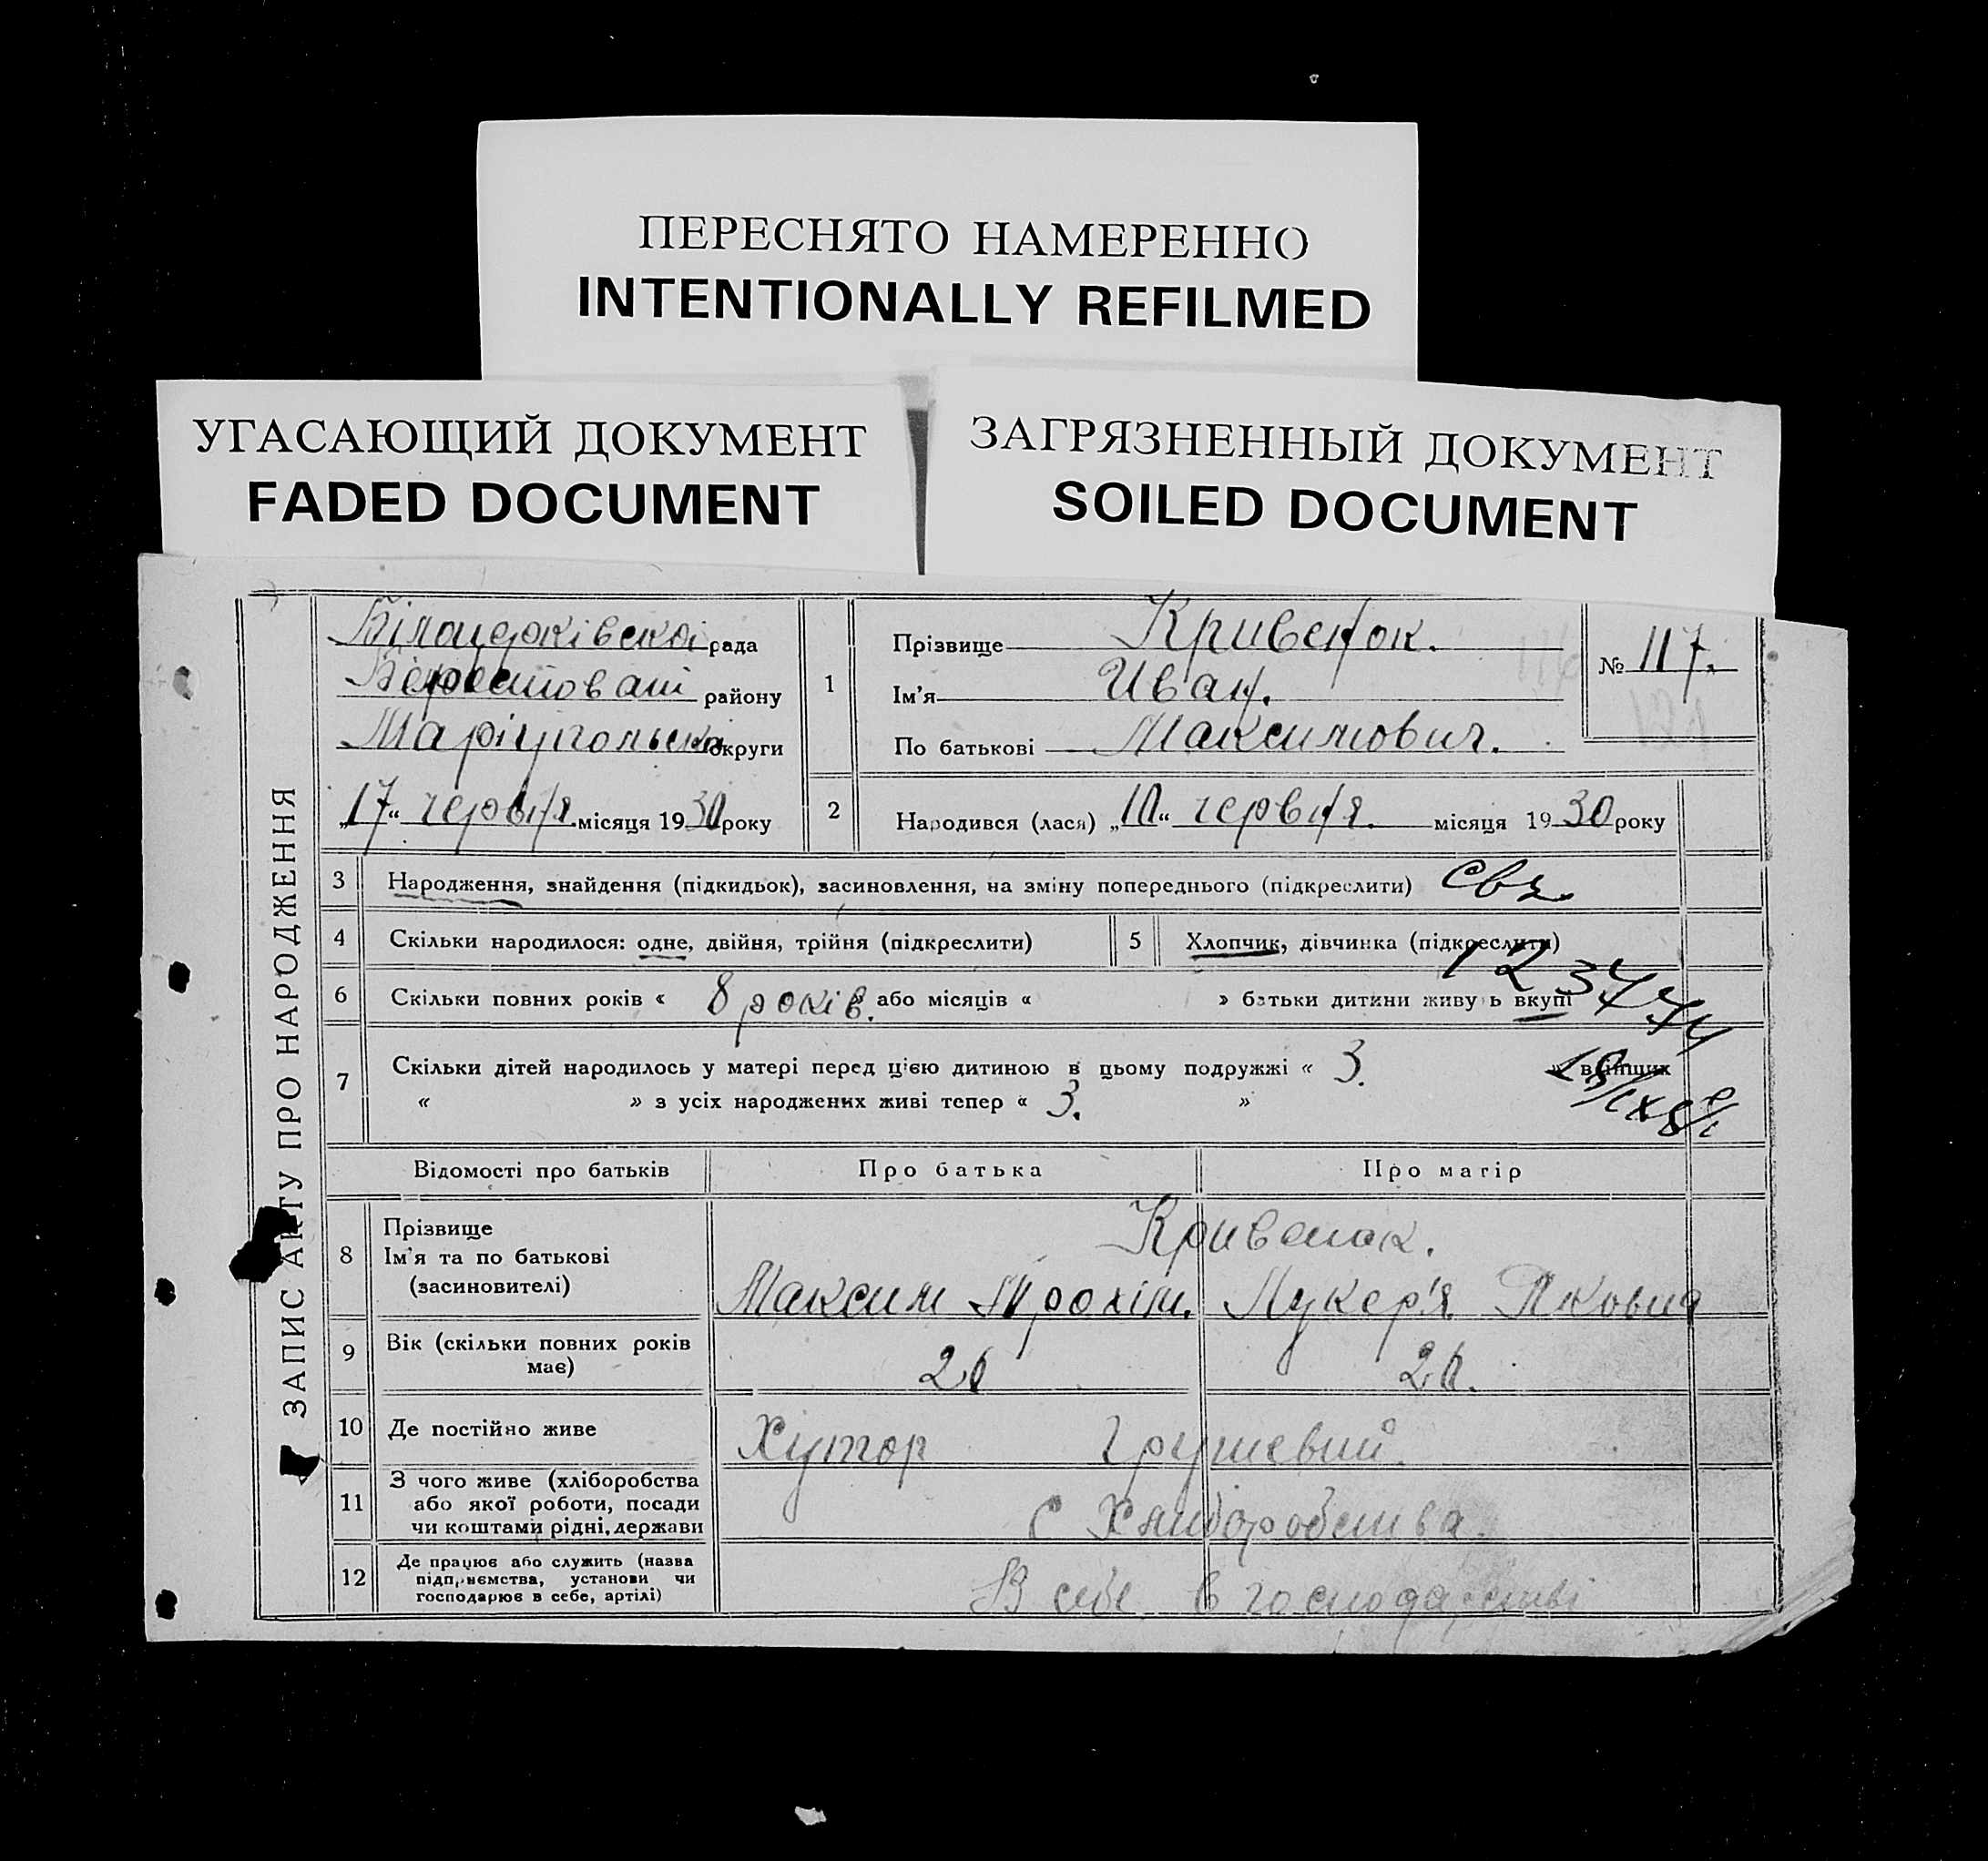 ПЕРЕСНЯТО НАМЕРЕННО
INTENTIONALLY REFILMED
УГАСАЮЩИЙ ДОКУМЕНТ
FADED DOCUMENT
ЗАГРЯЗНЕННЫЙ ДОКУМЕНТ
SOILED DOCUMENT
ЗАПИС АКТУ ПРО НАРОДЖЕННЯ
рада
району
Маріупольська округи
„17“ червня місяця 1930 року
1
Прізвище Кривенок.
Ім'я Иван.
По батькові Максимович.
№ 117.
2
Народився (лася) „10“ червня. місяця 1930 року
3 Народження, знайдення (підкидьок), засиновлення, на зміну попереднього (підкреслити)
4 Скільки народилося: одне, двійня, трійня (підкреслити)
5 Хлопчик, дівчинка (підкреслити)
6 Скільки повних років « 8 років. » або місяців « » батьки дитини живуть вкупі
7 Скільки дітей народилось у матері перед цією дитиною в цьому подружжі « 3. » в інших
« » з усіх народжених живі тепер « 3. »
Відомості про батьків Про батька Про матір
8 Прізвище
Ім'я та по батькові
(засиновителі)
Кривенок.
Максим Трохим. Лукер'я Яковна
9 Вік (скільки повних років
має)
26 26.
10 Де постійно живе Хутор Грушевий.
11 З чого живе (хліборобства
або якої роботи, посади
чи коштами рідні, держави
С Хлиборобства.
12 Де працює або служить (назва
підприємства, установи чи
господарює в себе, артілі)
В себе в господарстві